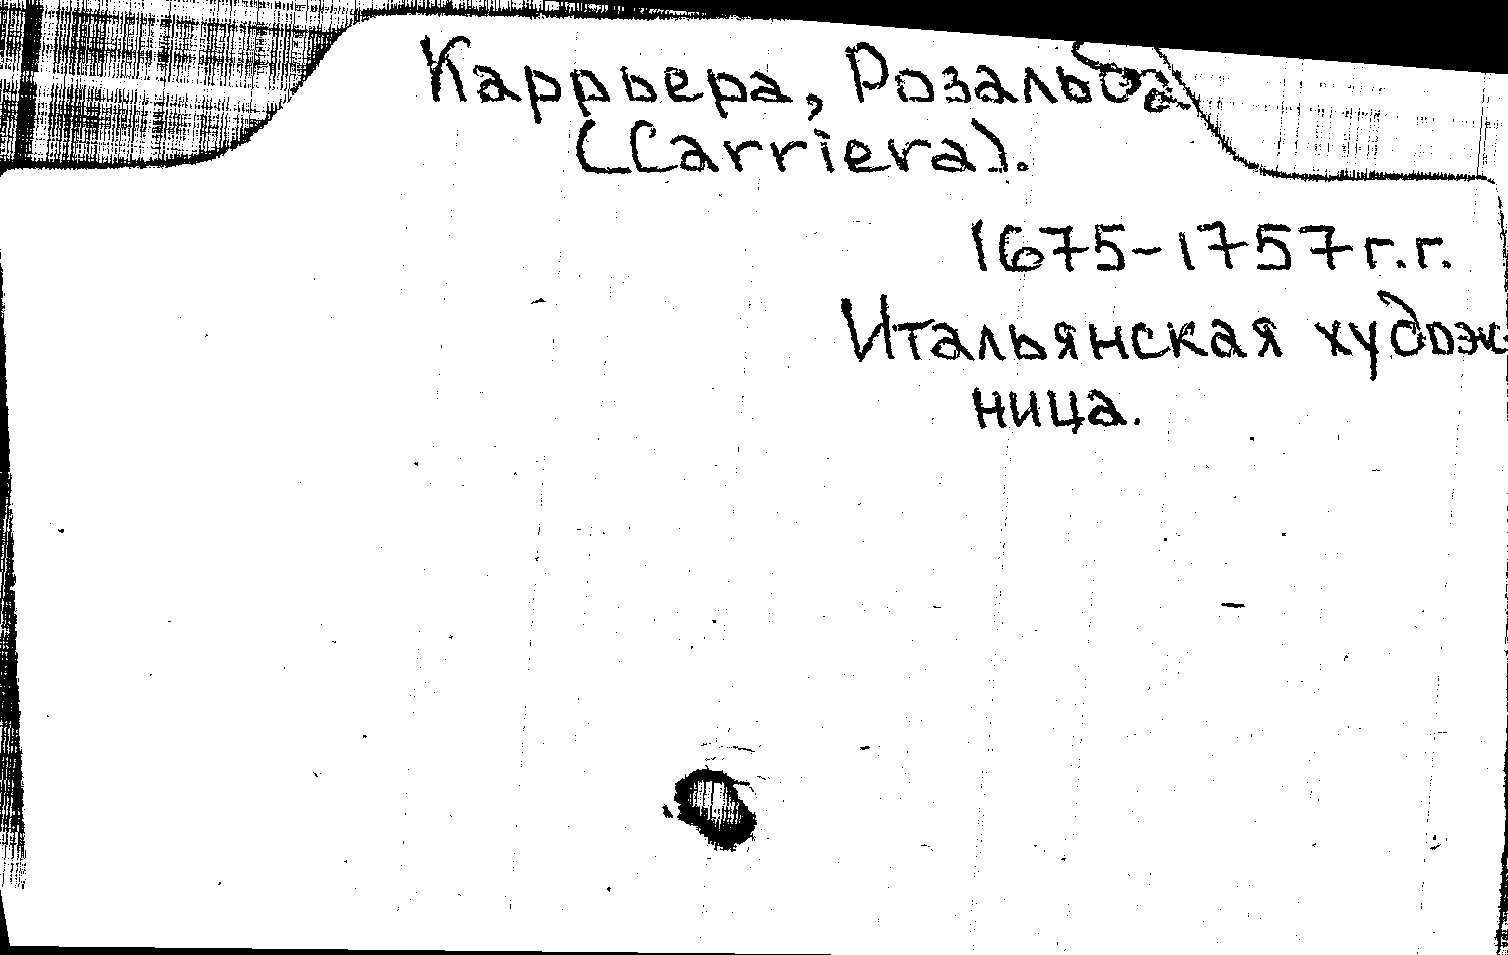 Каррьера, Розальба
(Carriera).
1675-1757 г.г.
Итальянская худож
ница.